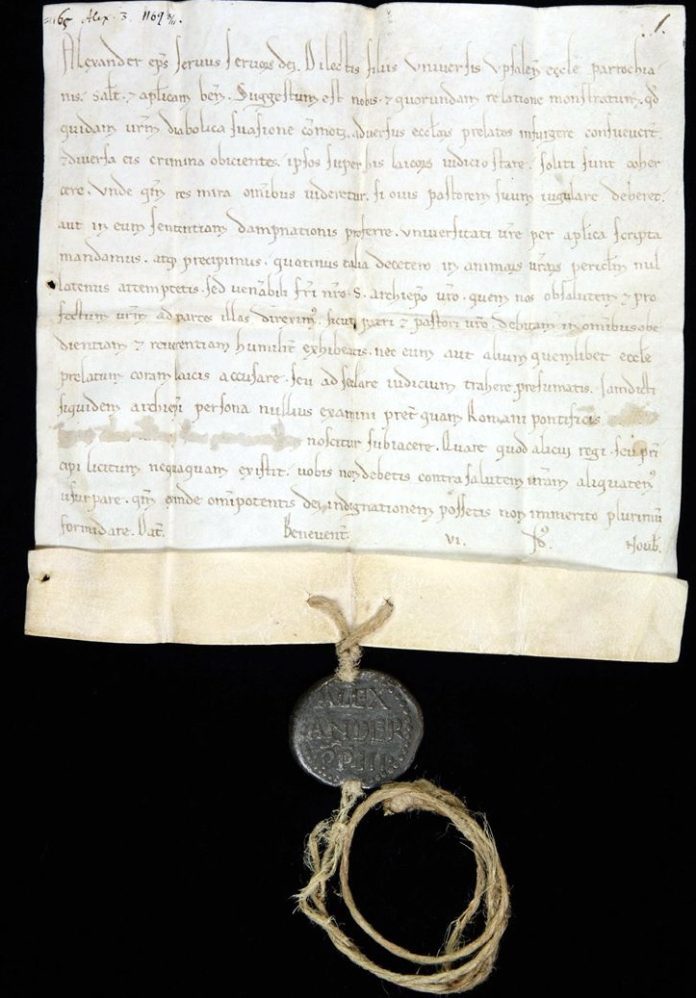 1165 Alex. 3. 1169 8/11.
1.
Alexander eps seruus seruoꝝ dei. Dilectis filiis uniuersis Vpsaleñ ęcclę parrochia
nis. salt̃. ⁊ aplicam beñ. Suggestum est nobis. ⁊ quorundam relatione monstratum. qd
quidam urm̃ diabolica suasione cõmoti. aduersus ecclꝝ prelatos insurgere consueuert̃.
⁊ diuersa eis crimina obicientes. ipsos super his laicoꝝ iudicio stare. soliti sunt coher
cere. Unde qm̃ res mira omibus uideretur. si ouis pastorem suum iugulare deberet.
aut in eum sententiam dampnationis proferre. uniuersitati ure per aplica scripta
mandamus. atq precipimus. quatinus talia decetero in animaꝝ uraꝝ pericłm nul
latenus attemptetis. Sed uenabili fri nro. S. archiepo uro. quem nos ob salutem ⁊ pro
fectum urm̃ ad partes illas direximꝰ. sicut patri ⁊ pastori uro. debitam in omibus obe
dientiam ⁊ reuerentiam humilit̃ exhibeatis. nec eum aut alium quemlibet ecclę
prelatum coram laicis accusare. seu ad seculare iudicium trahere presumatis. Iamdicti
siquidem archiepi persona nullius examini pret̃quam Romani pontificis
noscitur subiacere. Quare quod alicui regi. seu prin
cipi licitum nequaquam existit. uobis non debetis contra salutem uram aliquatenꝰ
usurpare. qm̃ exinde omipotentis dei indignationem possetis non immerito plurimũ
formidare. Dat̃. Beneuent̃. VI. Id. Nouƀ.
ALEX
ANDER
PP III